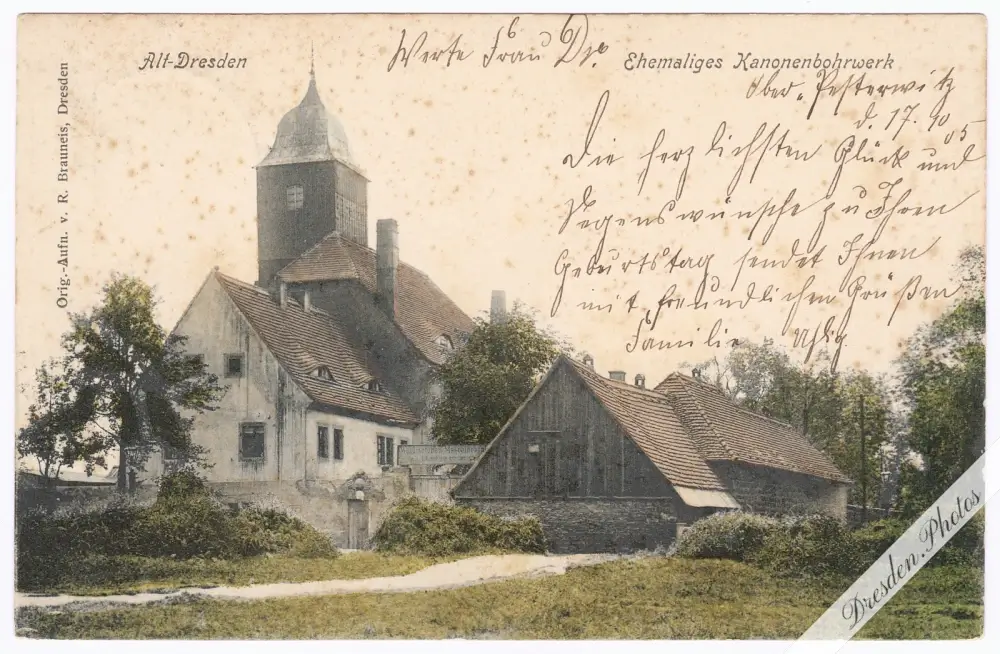 Alt-Dresden
Ehemaliges Kanonenbohrwerk
Orig.-Aufn. v. R. Brauneis, Dresden
Werte Frau Dr.
Ober-Pesterwitz
d. 17. 10 05
Die herzlichsten Glück und
Segenswünsche zu Ihren
Geburtstag sendet Ihnen
mit freundlichen Grüßen
Familie Uhlig
Dresden.Photos